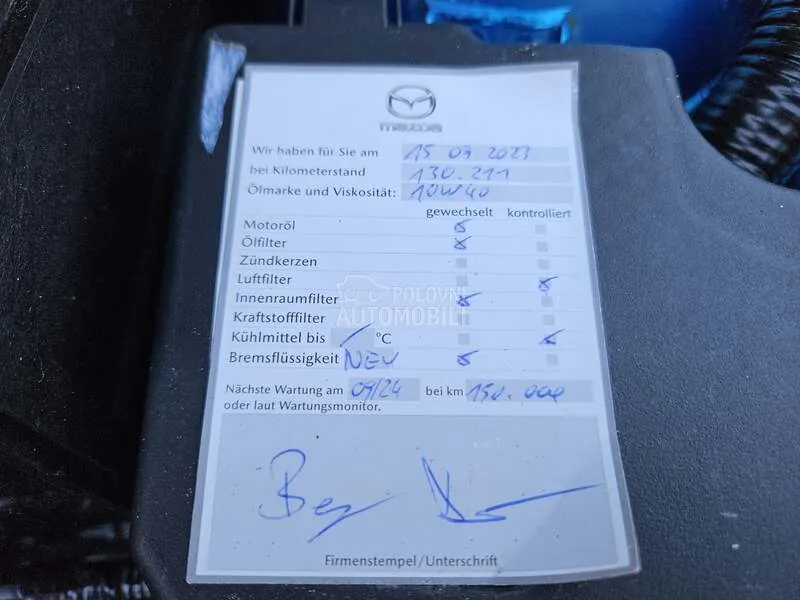 mazda
Wir haben für Sie am 15 09 2023
bei Kilometerstand 130.211
Ölmarke und Viskosität: 10W40
gewechselt kontrolliert
Motoröl
Ölfilter
Zündkerzen
Luftfilter
Innenraumfilter
POLOVNI
Kraftstofffilter
AUTOMOBILI
Kühlmittel bis / °C
Bremsflüssigkeit NEU
Nächste Wartung am 09/24 bei km 150.000
oder laut Wartungsmonitor.
Firmenstempel/Unterschrift